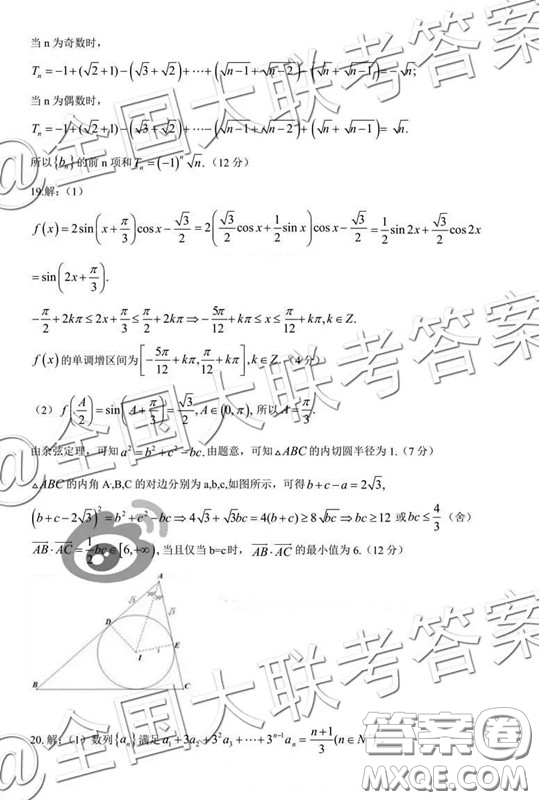 当 n 为奇数时，
Tₙ = -1+(√2+1)-(√3+√2)+⋯+(√(n-1)+√(n-2))-(√n+√(n-1)) = -√n;
当 n 为偶数时，
Tₙ = -1+(√2+1)-(√3+√2)+⋯-(√(n-1)+√(n-2))+(√n+√(n-1)) = √n.
所以{bₙ}的前 n 项和Tₙ=(-1)ⁿ√n.（12 分）
19.解：（1）
f(x)=2sin(x+π/3)cosx-√3/2=2(√3/2 cosx+1/2 sinx)cosx-√3/2=1/2 sin2x+√3/2 cos2x
=sin(2x+π/3).
-π/2+2kπ≤2x+π/3≤π/2+2kπ⇒-5π/12+kπ≤x≤π/12+kπ,k∈Z.
f(x)的单调增区间为[-5π/12+kπ,π/12+kπ],k∈Z.（4 分）
（2） f(A/2)=sin(A+π/3)=√3/2,A∈(0,π), 所以A=π/3.
由余弦定理，可知a²=b²+c²-bc.由题意，可知△ABC的内切圆半径为 1.（7 分）
△ABC的内角 A,B,C 的对边分别为 a,b,c,如图所示，可得b+c-a=2√3,
(b+c-2√3)²=b²+c²-bc⇒4√3+√3bc=4(b+c)≥8√bc⇒bc≥12 或bc≤4/3（舍）
AB·AC=1/2 bc∈[6,+∞), 当且仅当 b=c时，AB·AC 的最小值为 6.（12 分）
A
√3
30°
30°
√3
D
E
I
1
B
C
20.解：（1）数列{aₙ}满足a₁+3a₂+3²a₃+⋯+3ⁿ⁻¹aₙ=(n+1)/3(n∈N
@全国大联考答案
@全国大联考答案
@全国大联考答案
答案圈
MXQE.COM